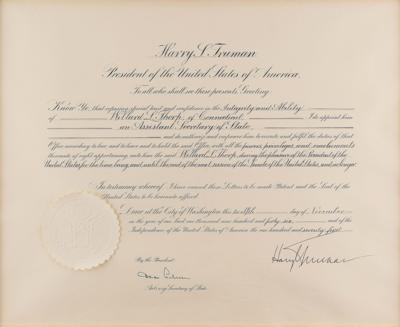 Harry S. Truman
President of the United States of America.
To all who shall see these presents, Greeting:
Know Ye, that reposing special trust and confidence in the Integrity and Ability
of Willard L. Thorp, of Connecticut, I do appoint him
an Assistant Secretary of State,
and do authorize and empower him to execute and fulfil the duties of that
Office according to law, and to have and to hold the said Office, with all the powers, privileges, and emoluments
thereunto of right appertaining, unto him the said Willard L. Thorp, during the pleasure of the President of the
United States for the time being, and until the end of the next session of the Senate of the United States, and no longer.
In testimony whereof, I have caused these Letters to be made Patent and the Seal of the
United States to be hereunto affixed.
Done at the City of Washington this twelfth day of November
in the year of our Lord one thousand nine hundred and forty-six and of the
Independence of the United States of America the one hundred and seventy-first.
Harry S. Truman
By the President:
Dean Acheson
Acting Secretary of State.